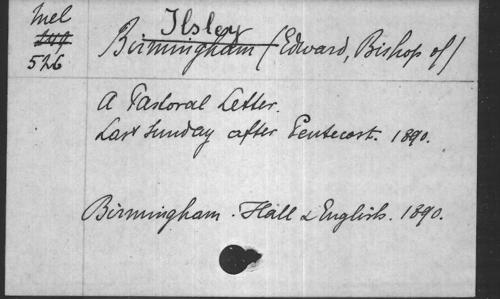 Mel
526
Ilsley
Birmingham (Edward, Bishop of)
A Pastoral Letter.
Last Sunday after Pentecost. 1890.
Birmingham. Hall & English. 1890.